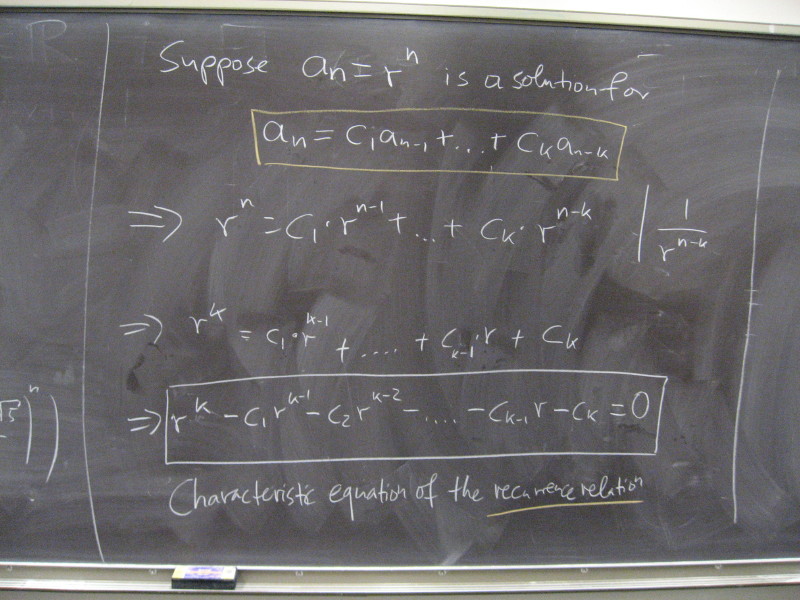 Suppose aₙ = rⁿ is a solution for
aₙ = c₁aₙ₋₁ + ... + cₖaₙ₋ₖ
⇒ rⁿ = c₁·rⁿ⁻¹ + ... + cₖ·rⁿ⁻ᵏ | 1/rⁿ⁻ᵏ
⇒ rᵏ = c₁·rᵏ⁻¹ + .... + cₖ₋₁·r + cₖ
⇒ rᵏ - c₁rᵏ⁻¹ - c₂rᵏ⁻² - .... - cₖ₋₁r - cₖ = 0
Characteristic equation of the recurrence relation